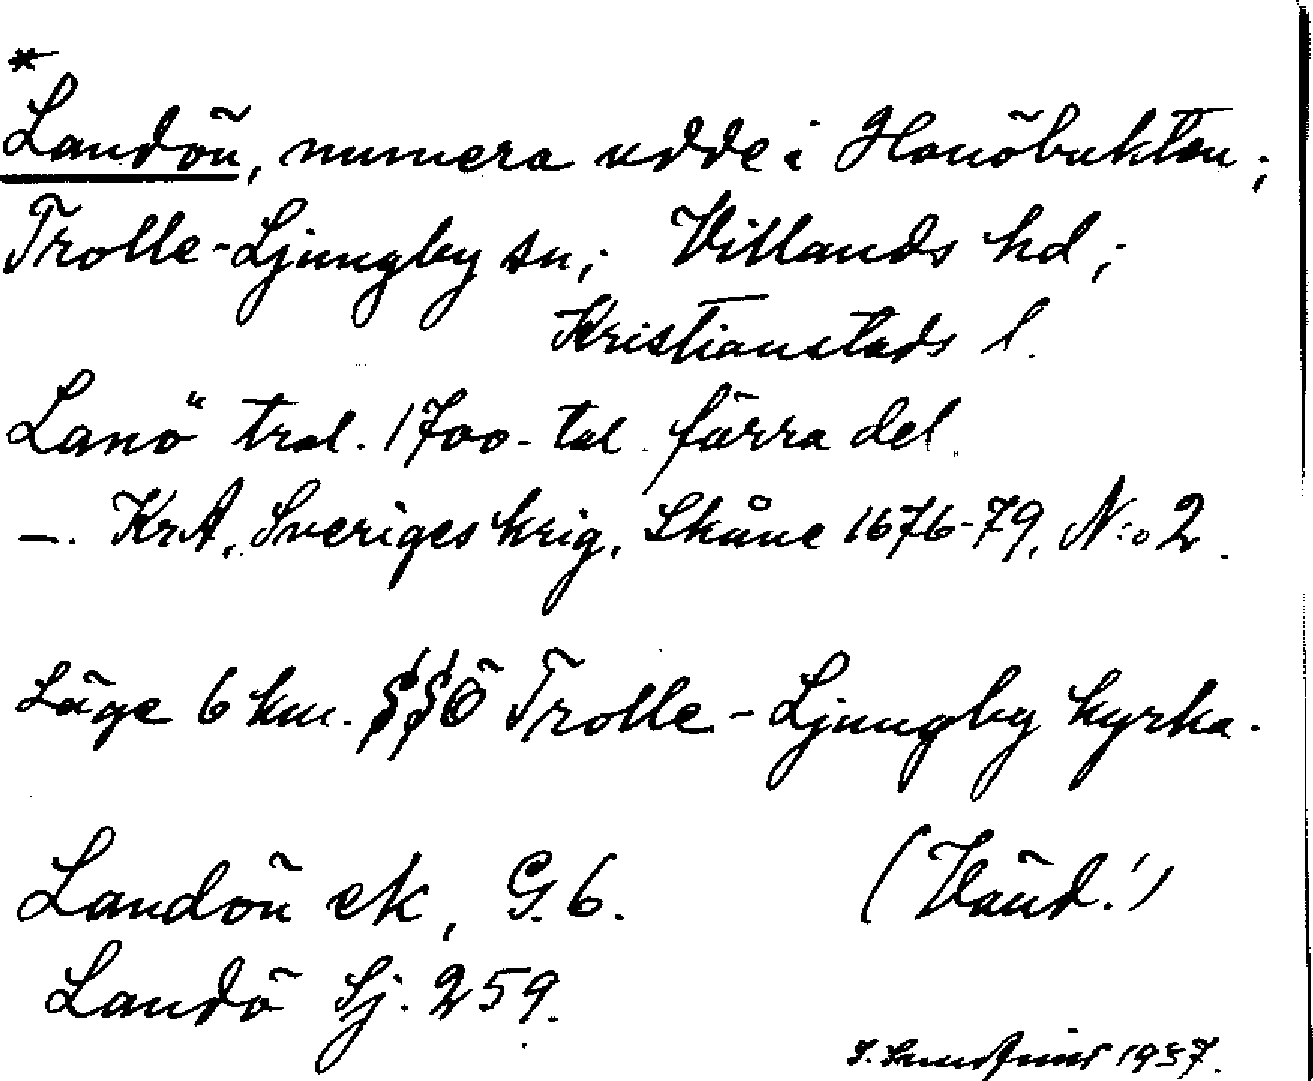 *
Landön, numera udde i Hanöbukten;
Trolle-Ljungby sn; Villands hd;
Kristianstads l.
Lanö trol. 1700-tal förra del
—. KrA, Sveriges krig, Skåne 1676-79, N:o 2.
Läge 6 km. SSÖ Trolle-Ljungby kyrka.
Landön ek, G. 6. (Vänd!)
Landö Sj. 259.
1937.